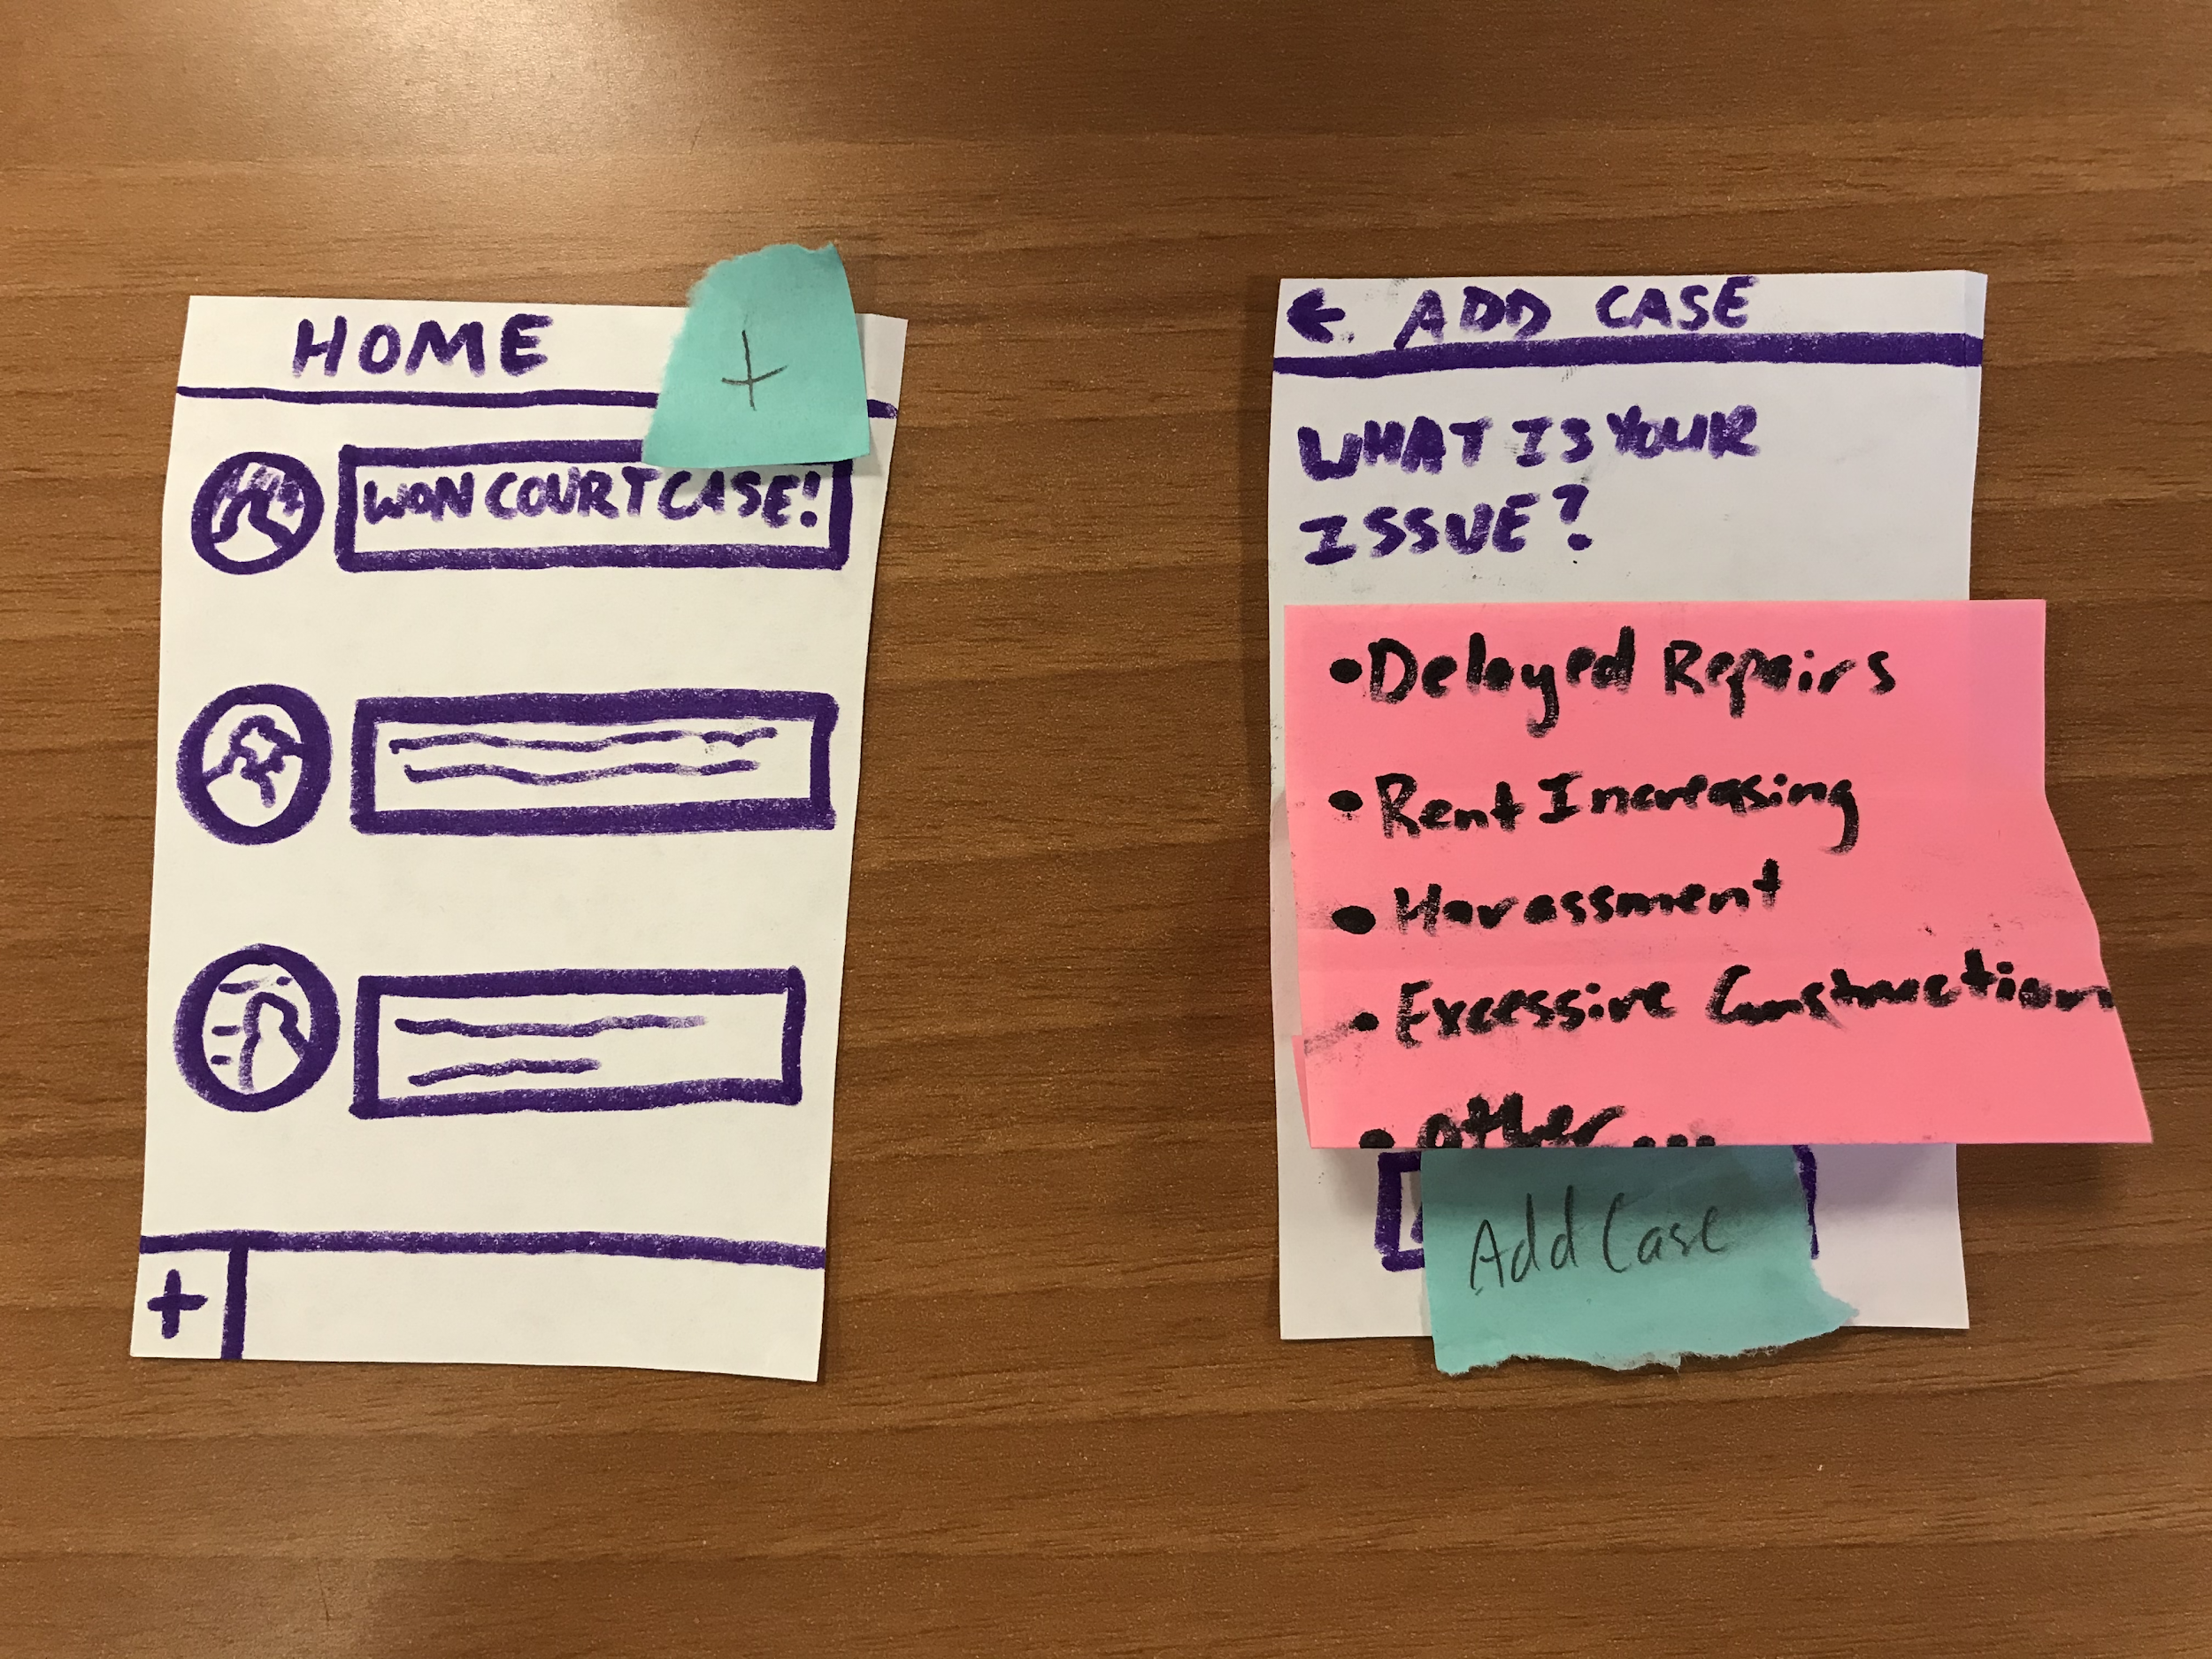 HOME
+
WON COURT CASE!
+
← ADD CASE
WHAT IS YOUR
ISSUE?
•Delayed Repairs
•Rent Increasing
•Harassment
•Excessive Construction
•Other ...
Add Case